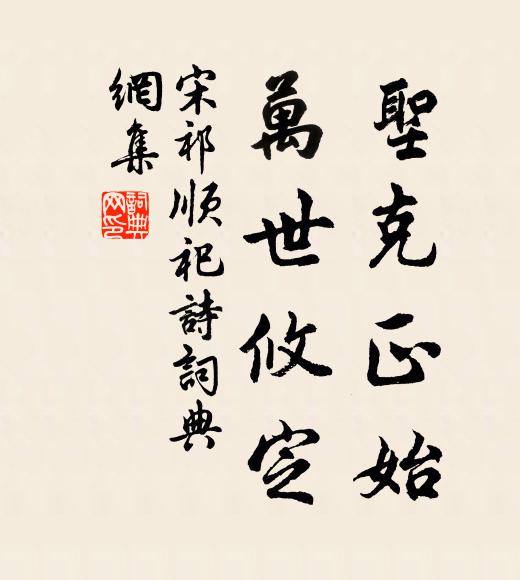 聖克正始
萬世攸定
宋祁順祀詩詞典
網集
詞典網印